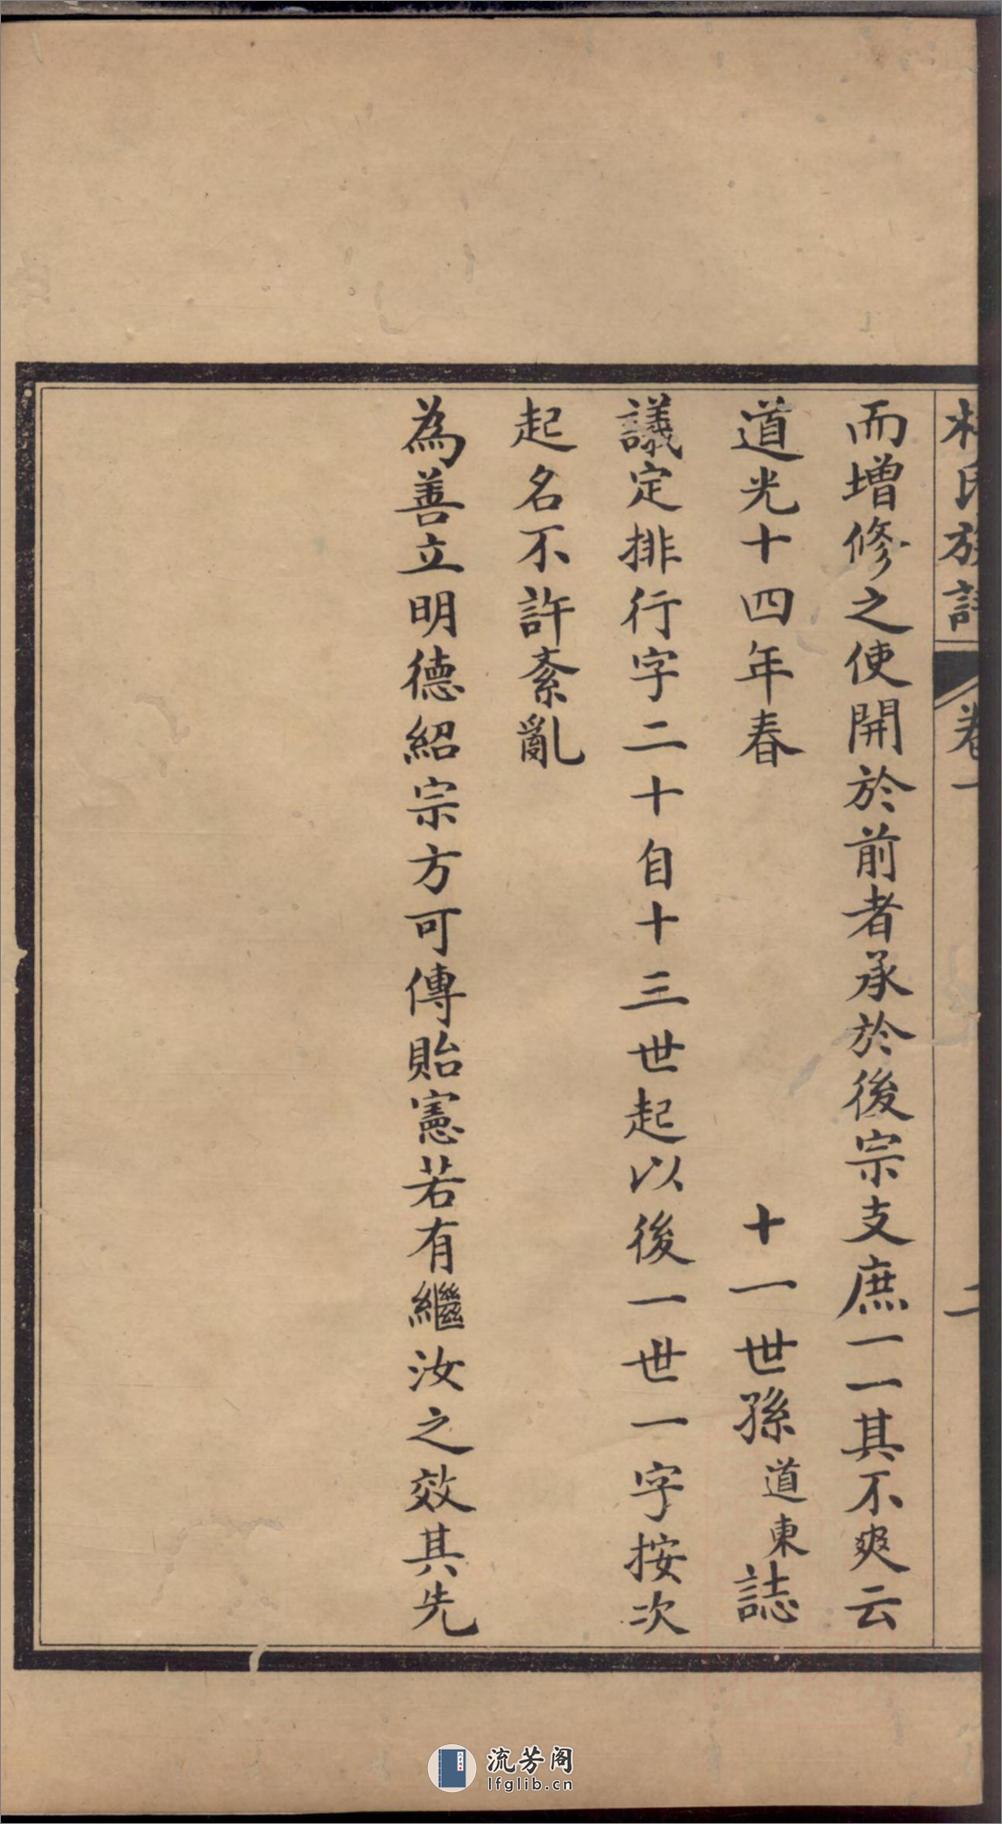 氏族譜 卷一 二
而增修之使開於前者承於後宗支庶一一其不爽云
道光十四年春 十一世孫道東誌
議定排行字二十自十三世起以後一世一字按次
起名不許紊亂
為善立明德紹宗方可傳貽憲若有繼汝之效其先
流芳阁
lfglib.cn